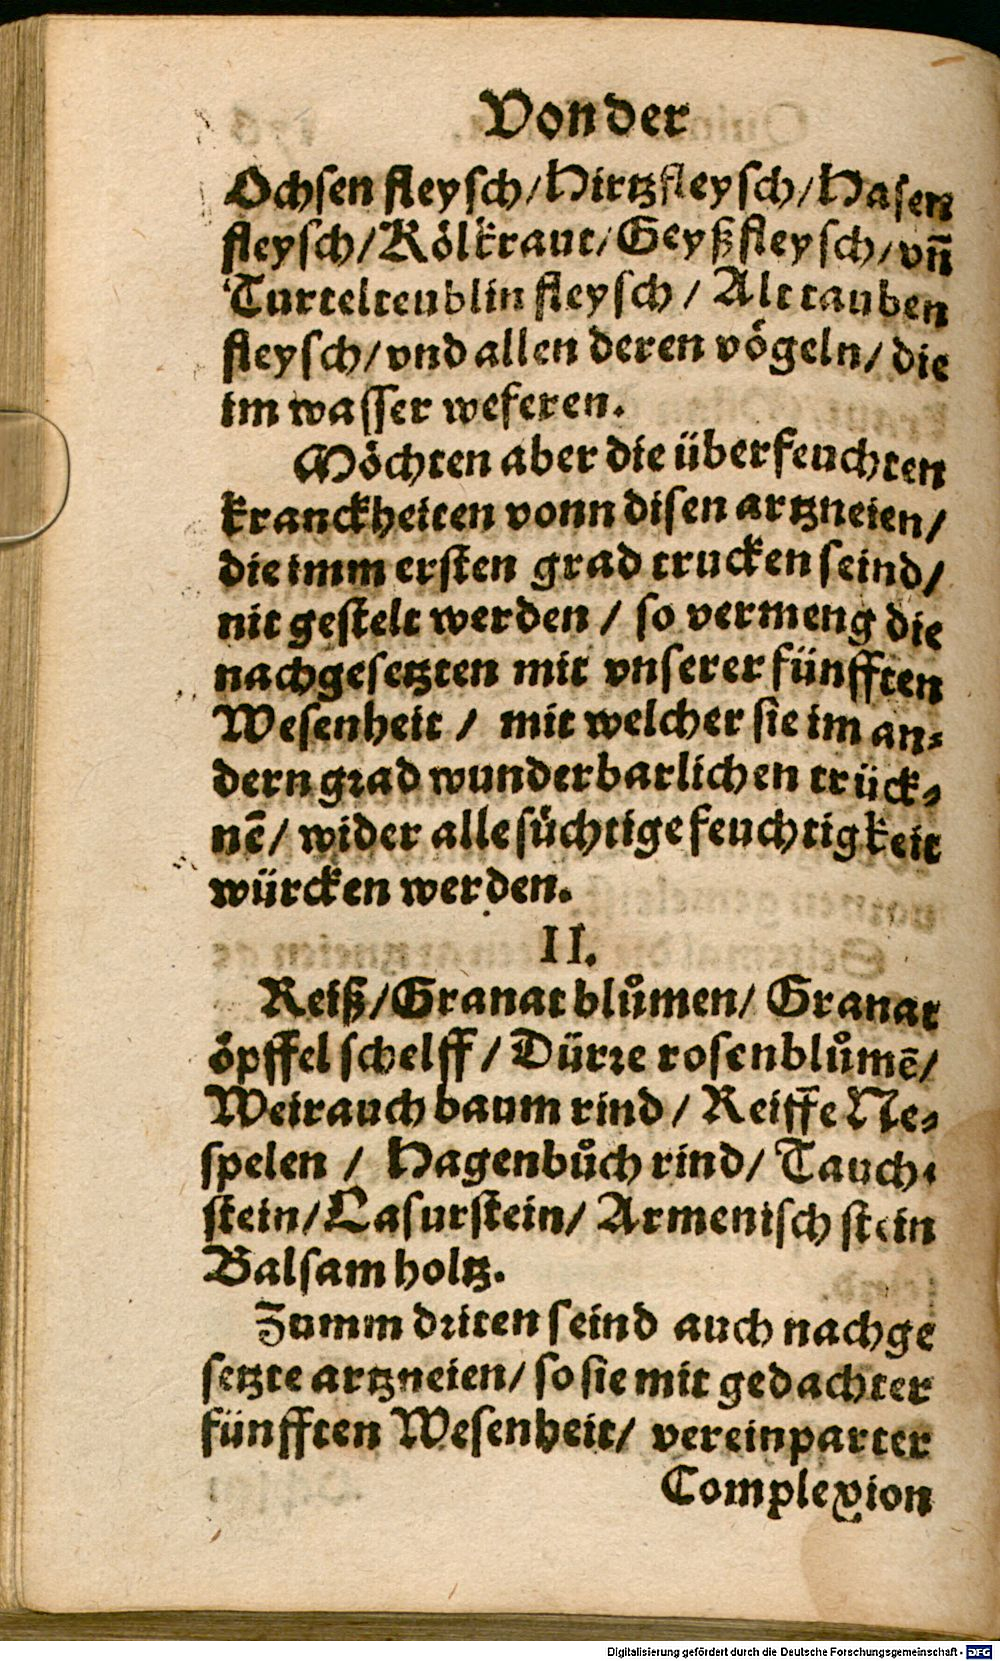 Von der
Ochsen fleysch/Hirtzfleysch/Hasen
fleysch/Kölkraut/Geyßfleysch/vn̄
Turtelteublin fleysch / Alt tauben
fleysch/vnd allen deren vögeln/ die
im wasser weferen.
Möchten aber die überfeuchten
kranckheiten vonn disen artzneien/
die imm ersten grad trucken seind/
nit gestelt werden / so vermeng die
nachgesetzten mit vnserer fünfften
Wesenheit / mit welcher sie im an⸗
dern grad wunderbarlichen trück⸗
nē/ wider alle süchtige feuchtigkeit
würcken werden.
II.
Reiß/Granat blůmen/ Granat
öpffel schelff / Dürre rosenblůmē/
Weirauch baum rind / Reiffe Ne⸗
spelen / Hagenbůch rind/ Tauch⸗
stein/Lasurstein/ Armenisch stein
Balsam holtz.
Zumm driten seind auch nachge
setzte artzneien/ so sie mit gedachter
fünfften Wesenheit/ vereinparter
Complexion
Digitalisierung gefördert durch die Deutsche Forschungsgemeinschaft - DFG